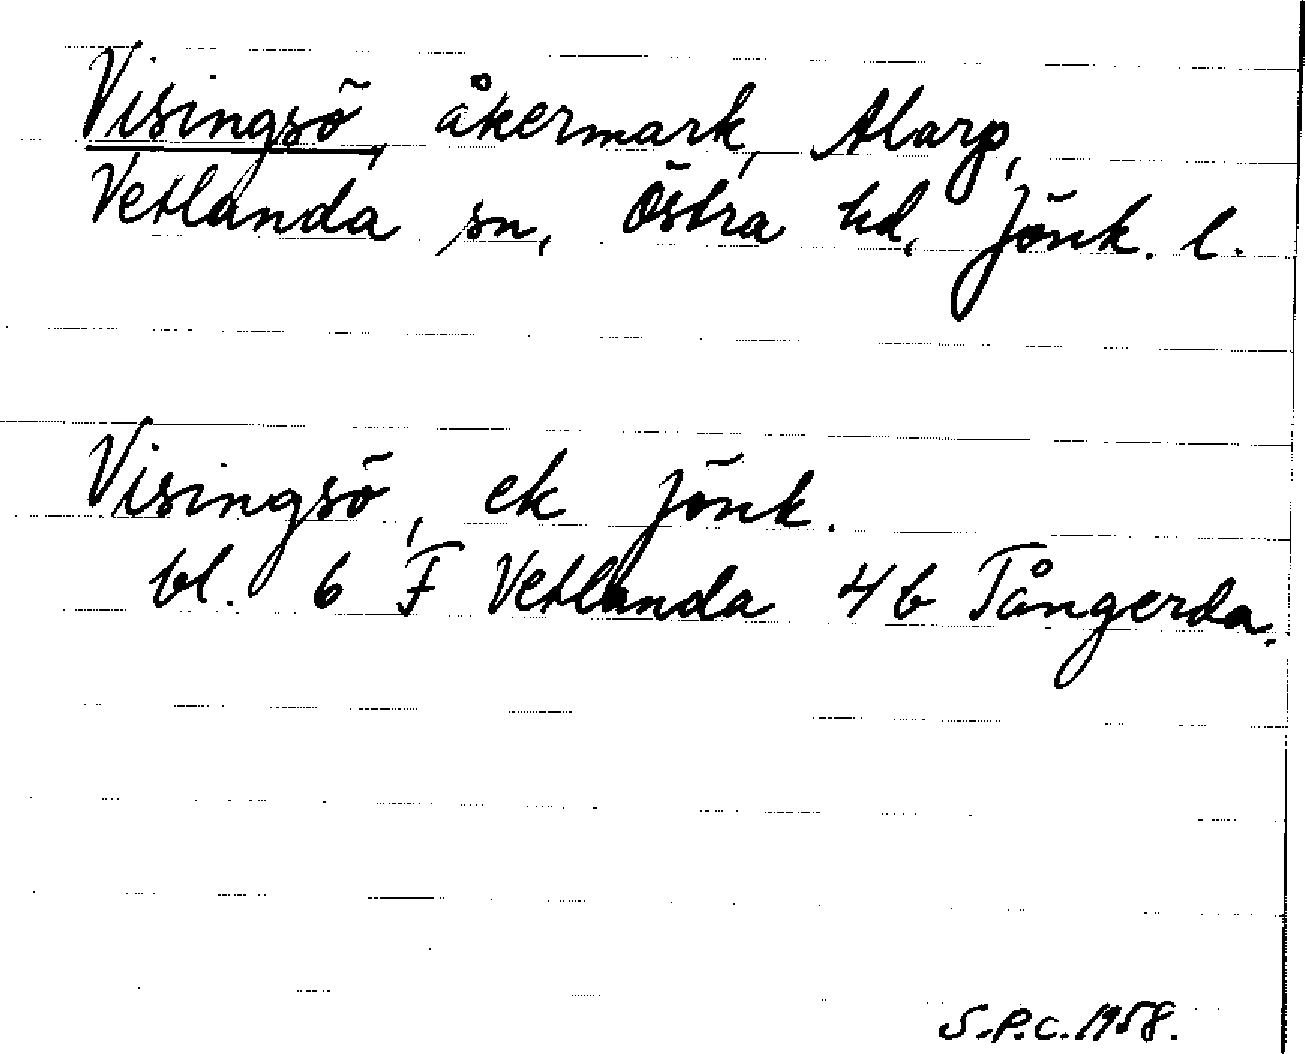 Visingsö, åkermark, Alarp,
Vetlanda sn, Östra hd, Jönk. l.
Visingsö, ek Jönk.
bl. 6 F Vetlanda 4 b Tångerda.
S.P.C. 1958.